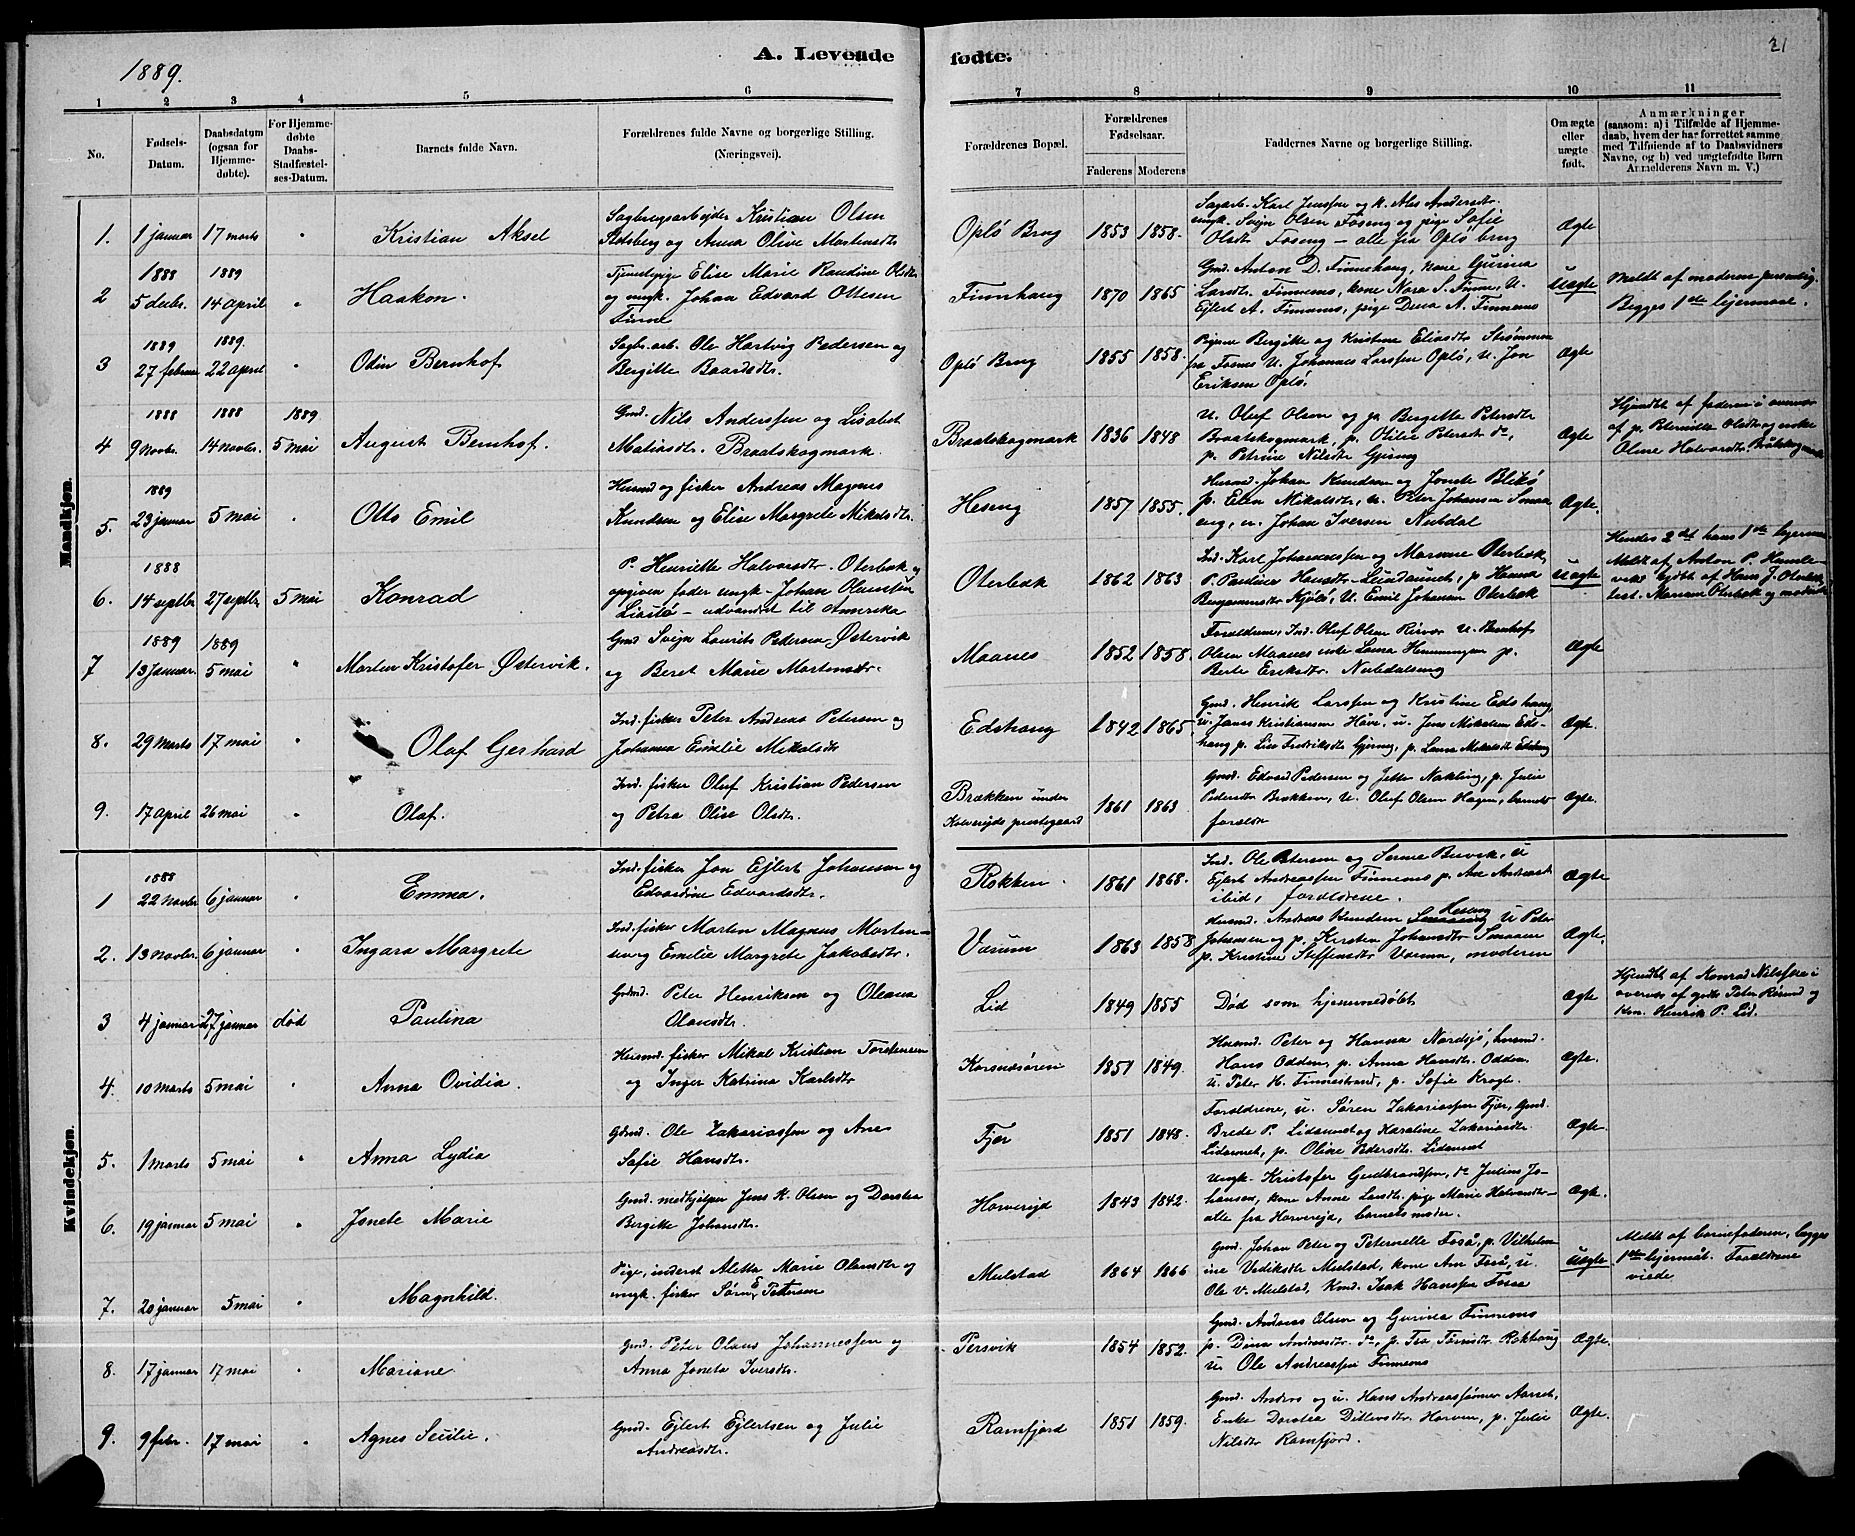 1889.
A. Levende fødte.
21
1 2 3 4 5 6 7 8 9 10 11
No.
Fødsels-Datum.
Daabsdatum (ogsaa for Hjemme-døbte).
For Hjemme-døbte Daabs-Stadfæstel-ses-Datum.
Barnets fulde Navn.
Forældrenes fulde Navne og borgerlige Stilling. (Næringsvei).
Forældrenes Bopæl.
Forældrenes Fødselsaar.
Faderens Moderens
Faddernes Navne og borgerlige Stilling.
Om ægte eller uægte født.
Anmærkninger
(saasom: a) i Tilfælde af Hjemme-
daab, hvem der har forrettet samme
med Tilføiende af to Daabsvidners
Navne, og b) ved uægtefødte Børn
Anmelderens Navn m. V.)
Mandkjøn.
1. 1 januar 17 marts " Kristian Aksel
Sagbrugsarbejder Kristian Olsen
og Anna Olive Martensdtr
Oplø Brug 1853 1858.
Sagarb. Karl Jenssen og k. Ales Andersdtr.
ungk. Svejn Olsen Foseng og pige Sofie
Olsdtr Foseng – alle fra Oplø brug
Ægte
2 1888 5 decbr. 1889 14 april " Haakon.
Tjenestepige Elise Marie Raudine Olsdtr
og ungk. Johan Edvard Ottesen
Finne
Finnhaug 1870 1865
Gmd. Anton D. Finnehaug, kone Gurina
Larsdtr. Finnemo, kone Nora S. Finne, U.
Ejlert A. Finnemo, pige Dina A. Finnemo
Uægte
Meldt af moderen personlig.
Begges 1ste lejermaal.
3 1889 27 februar 1889. 22 april " Odin Bernhof
Sagbr. arb. Ole Hartvig Pedersen og
Bergitte Baardsdtr.
Oplø Brug 1855 1858.
Bergitte og Kristine Eliasdtr Strømmen
fra Foenes U. Johannes Larssen Oplø, U. Jon
Eriksen Oplø.
Ægte
4 1888 9 Novbr. 1888 14 novbr. 1889 5 mai August Bernhof.
Gmd. Nils Anderssen og Lisabet
Matiasdtr. Braatskogmark.
Braatskogmark 1836 1848
U. Oluf Olsen og p. Bergitte Petersdtr
Braatskogmark, p. Otilie Petersdtr do,
p. Petrine Nilsdtr Gjerng
Ægte
Hjemdbt af faderen i overvær
af p. Peternille Olsdtr og enke
Oline Halvardsdtr.
5. 1889 23 januar 5 mai " Otto Emil
Husmd og fisker Andreas Magnus
Knudsen og Elise Margrete Mikalsdtr.
Heseng 1857 1855.
Husmd. Johan Knudsen og Jonete Blikø
p. Elen Mikalsdtr, u. Peter Johansen Smaa
eng, u. Johan Iversen Nubdal
Ægte.
6. 1888 14 septbr 27 septbr. 5 mai Konrad
P. Henriette Halvorsdtr. Oterbæk og
opgiven fader ungk. Johan Olaussen
– udvandret til Amerika
Oterbæk 1862 1863
Ind. Karl Johannessen og Mariane Oterbæk,
P. Pauline Hansdtr. Lindaunet, p. Hanna
Benjaminsdtr Kjølø, U. Emil Johansen Oterbæk
Uægte
Hendes 2det hans 1ste lejermaal
Meldt af Anton P.
7 1889 13 januar. 1889 5 mai " Morten Kristofer Østervik.
Gmd Svejn Laurits Pedersen Østervik
og Beret Marie Martensdtr.
Maanes 1852 1858
Forældrene, Ind. Oluf Olsen U. Bernhof
Olsen Maanes enke Lana Hemmingsen p.
Berte Eriksdtr. Nubdalseng
Ægte
8. 29 marts 17 mai " Olaf Gerhard
Ind. fisker Peter Andreas Petersen og
Johanna Emilie Mikalsdtr
Edshaug 1842 1865.
Gmd. Henrik Larssen og Kristine Edshaug,
u. Janes Kristiansen Haan, u. Jens Mikalsen Eds-
haug p. Lise Fredriksdtr Gjerng, p. Lana Mikalsdtr Edshaug
Ægte.
9. 17 april 26 mai " Olaf.
Ind. fisker Oluf Kristian Pedersen
og Petra Olise Olsdtr.
Brækken under
Kolvereids prestegaard
1861 1863
Gmd. Edvard Pedersen og Jette Nakling, p. Julie
Pedersdtr Brækken, U. Oluf Olsen Hagen, barnets
foreldre
Ægte.
Kvindekjøn.
1 1888 22 Novbr 6 januar " Emma.
Ind. fisker Jon Ejlert Johansen og
Edvardine Edvardsdtr.
Rokken. 1861 1868.
Ind. Ole Petersen og Serine Buvik, U
Ejlert Andreassen Finnemo p. Ane Andreasdtr
ibid, forældrene.
Ægte
2. 13 Novbr. 6 januar " Ingara Margrete
Ind. fisker Morten Magnus Morten-
sen og Emilie Margrete Jakobsdtr.
Varum 1863 1858
Husmd. Andreas Knudsen Heseng U Peter
Johansen og p. Kirsten Johansdtr Smaaen
p. Kristine Steffensdtr Varum, moderen
Ægte.
3 4 januar 27 januar død Paulina
Gdmd. Peter Henriksen og Oleana
Olausdtr.
Lid 1849 1855
Død som hjemmedøbt
Ægte
Hjemdbt af Konrad Nilssen i
overvær af Peter og
Henrik P. Lid.
4. 10 marts 5 mai " Anna Ovidia.
Husmd. fisker Mikal Kristian Torstensen
og Inger Katrina Karlsdtr
Korsnesøren 1851 1849.
Husmd. Peter og Hanna Nordsjø, husmd.
Hans Odden, p. Anna Hansdtr. Odden
U. Peter H. Finnestrand, p. Sofie Krogh.
Ægte.
5. 1 marts 5 mai " Anna Lydia
Gdmd. Ole Zakariassen og Ane
Sofie Hansdtr.
Fjer 1851 1848.
Forældrene, u. Søren Zakariassen Fjer, Gmd.
Brede P. Lidaunet og Karoline Zakariasdtr
Lidaunet, p. Oline Pedersdtr. Lidaunet
Ægte.
6. 19 januar 5 mai " Jonete Marie
Gmd. medhjelper Jens K. Olsen og Dorotea
Bergitte Johansdtr.
Horvereid 1843 1842.
Ungk. Kristofer Gudbrandsen, do Julius Jo-
hansen, kone Anne Larsdtr, pige Marie Halvardsdtr –
alle fra Horvereid, barnets moder.
Ægte.
7. 20 januar 5 mai " Magnhild.
Pige, inderst Aletta Marie Olausdtr og
ungk. fisker Søren E Petersen
Mulstad 1864 1866
Gmd. Johan Peter og Peternelle Foså, p. Vilhelm-
ine Vediksdtr Mulstad, kone Ane Foså, U.
Ole V. Mulstad, Kond. Isak Hanssen Fosaa
Uægte
Meldt af barnefaderen, begges
1ste lejermål. Forældrene
viede
8. 17 januar 17 mai " Mariane
Gmd. Peter Olaus Johannessen og
Anna Joneta Iversdtr.
Persvik 1854 1852.
Gmd. Andreas Olsen og Gurina Finnemo
p. Dina Andreasdtr. do, p. Rokhaug
u. Ole Andreassen Finnemo
Ægte.
9. 9 febr. 17 mai " Agnes Secilie.
Gmd. Ejlert Ejlertsen og Julie
Andreasdtr.
Ramfjord 1851 1859.
Gmd. Anders og u. Hans Andreassønner Aarset,
Enke Dorotea Ditlevsdtr. Horven, p. Julie
Nilsdtr Ramfjord.
Ægte.